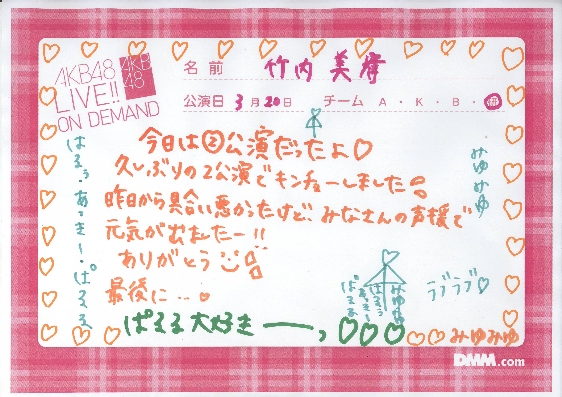 AKB48
LIVE!!
ON DEMAND
AKB
48
名前 竹内美宥
公演日 3月20日 チーム A・K・B・研
今日は②公演だったよ♡
久しぶりの2公演でキンチョーしました
昨日から具合い悪かったけど、みなさんの声援で
元気が出ましたー!!
ありがとう
最後に…
ぱるる大好きーーっ♡♡♡
はるぅ・あっきー・ぱるる
みゆみゆ
みゆみゆ
はるぅ
あっきー
ぱるる
ラブラブ♡
みゆみゆ
DMM.com